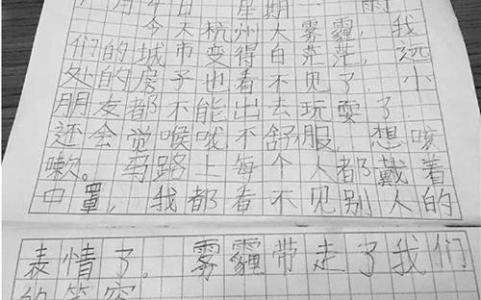 月 日 星期一 雨
今天杭州大雾霾，我
们的城市变得白茫茫，远
处的房子也看不见了，小
朋友都不能出去玩耍了，
还会觉喉咙不舒服，想咳
嗽。马路上每个人都戴着
口罩，我都看不见别人的
表情了。雾霾带走了我们
的笑容